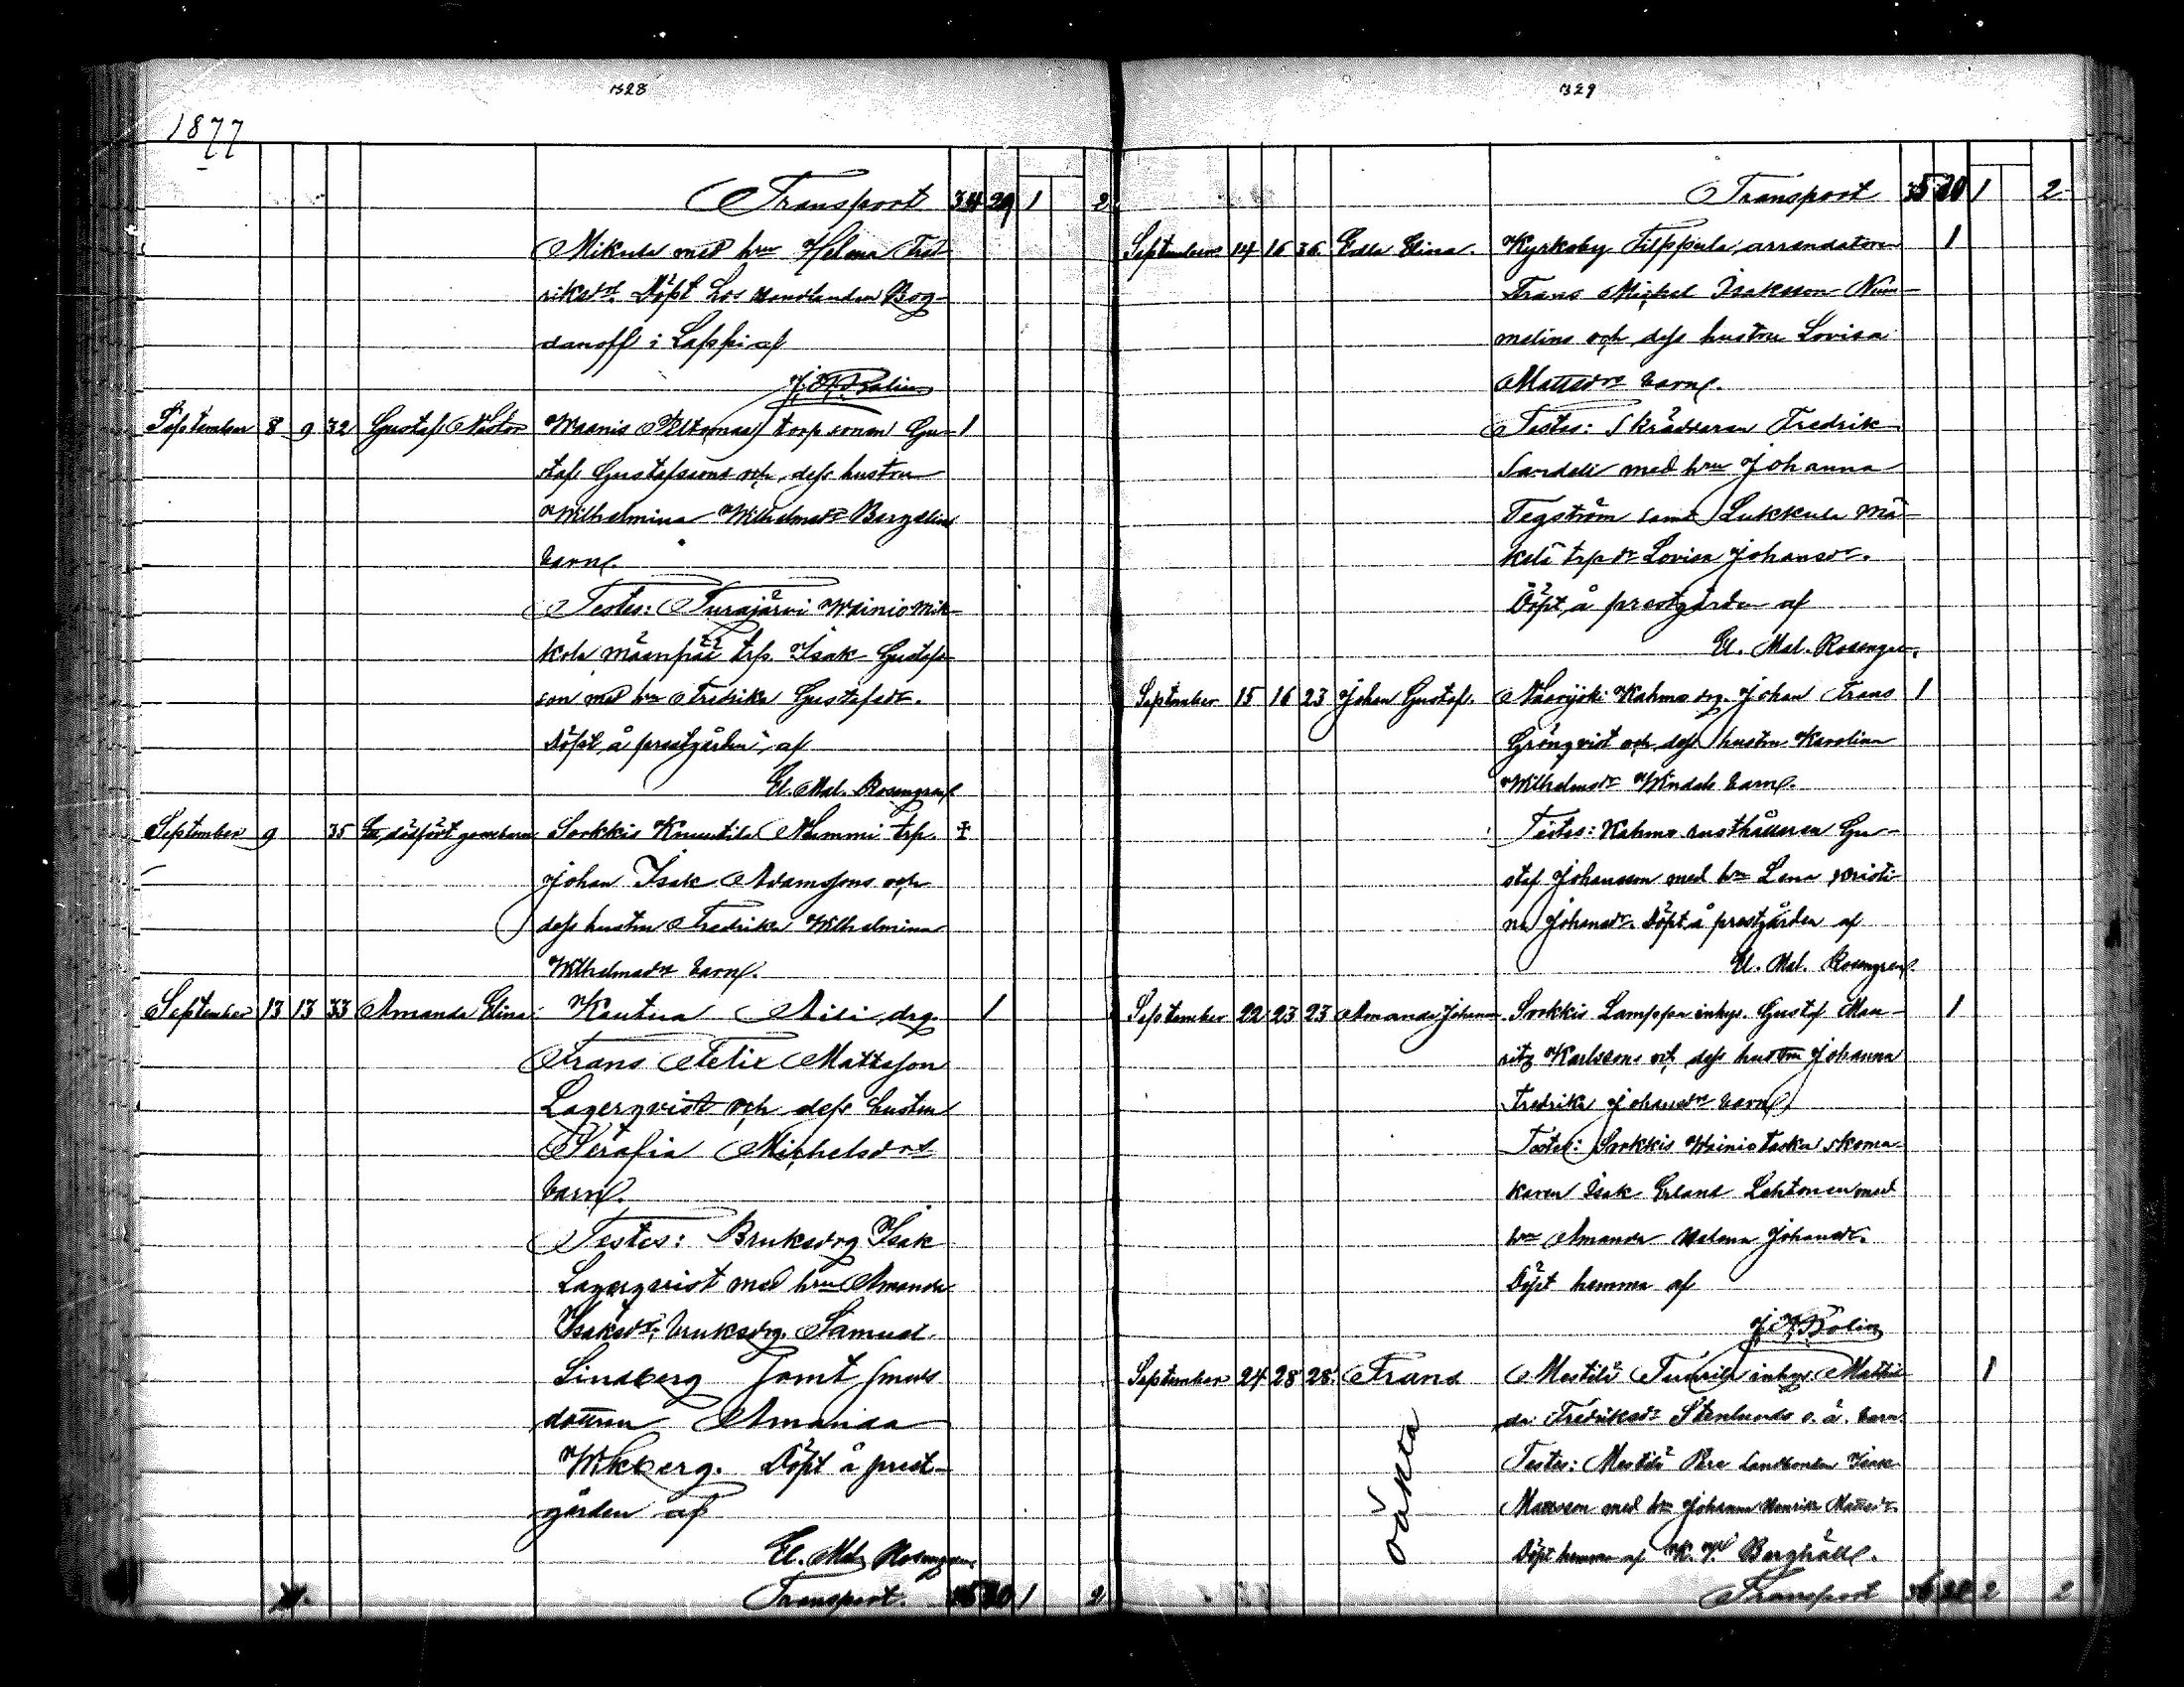 328
1877
Transport 34 29 1 2
Mikula med hru Helena Fred-
riksdr. Döpt hos Handlanden Bog-
danoff i Lappi af
September 8 9 32 Gustaf Nestor Waanis torp sonen Gu- 1
staf Gustafssons och dess hustru
Wilhelmina Wilhelmsdr Bergelins
barn.
Testes: Turajärvi Wainio Mik-
kola mäenpää trp. Isak Gustafs-
son med hru Fredrika Gustafsdr.
Döpt å prestgården af
El. Mal. Rosengren
September 9 35 Ett dödfödt gossebarn Sorkkis Knuutila Nummi trp. ‡
Johan Isak Adamssons och
dess hustru Fredrika Wilhelmina
Wilhelmsdrs barn.
September 13 13 33 Amanda Elina. Kautua drg. 1
Frans Felix Mattsson
Lagerqvist och dess hustru
Serafia Michelsdrs
barn.
Testes: Bruksdrg Isak
Lagerqvist med hru Amanda
Isaksdr, bruksdrg. Samuel
Lindberg samt smeds
dottren Amanda
Wikberg. Döpt å prest-
gården af
El. Mal. Rosengren
Transport. 35 30 1 2
329
Transport 35 30 1 2
September 14 16 36 Edla Elina. Kyrkoby Filppula, arrendatorn 1
Frans Michel Isaksson Num-
melins och dess hustru Lovisa
Mattsdrs barn.
Testes: Skräddaren Fredrik
Sandell med hru Johanna
Tegström samt Lukkula Mä-
kelä trp dr Lovisa Johansdr.
Döpt å prestgården af
El. Mal. Rosengren.
September 15 16 23 Johan Gustaf. Naarjoki Kahma drg. Johan Frans 1
Grönqvist och dess hustru Karolina
Wilhelmsdr Windals barn.
Testes: Kahma rusthållaren Gu-
staf Johansson med hru Lena Kristi-
na Johansdr. Döpt å prestgården af
El. Mal. Rosengren.
September 22 23 23 Amanda Johanna. Sorkkis Lamppa inhys. Gustaf Mau- 1
ritz Karlssons och dess hustru Johanna
Fredrika Johansdrs barn.
Testes: Sorkkis Wainiotaska skoma-
karen Isak Erland Lehtonen med
hru Amanda Helena Johansdr.
Döpt hemma af
September 24 28 28. Frans Mestilä inhys Mathil- 1
da Fredriksdr Stenlunds o. ä. barn.
Testes: Mestilä Landbonden Isak
Mattsson med hru Johanna Henrika Mattsdr.
Döpt hemma af K. Berghäll.
oäkta
Transport 36 32 2 2